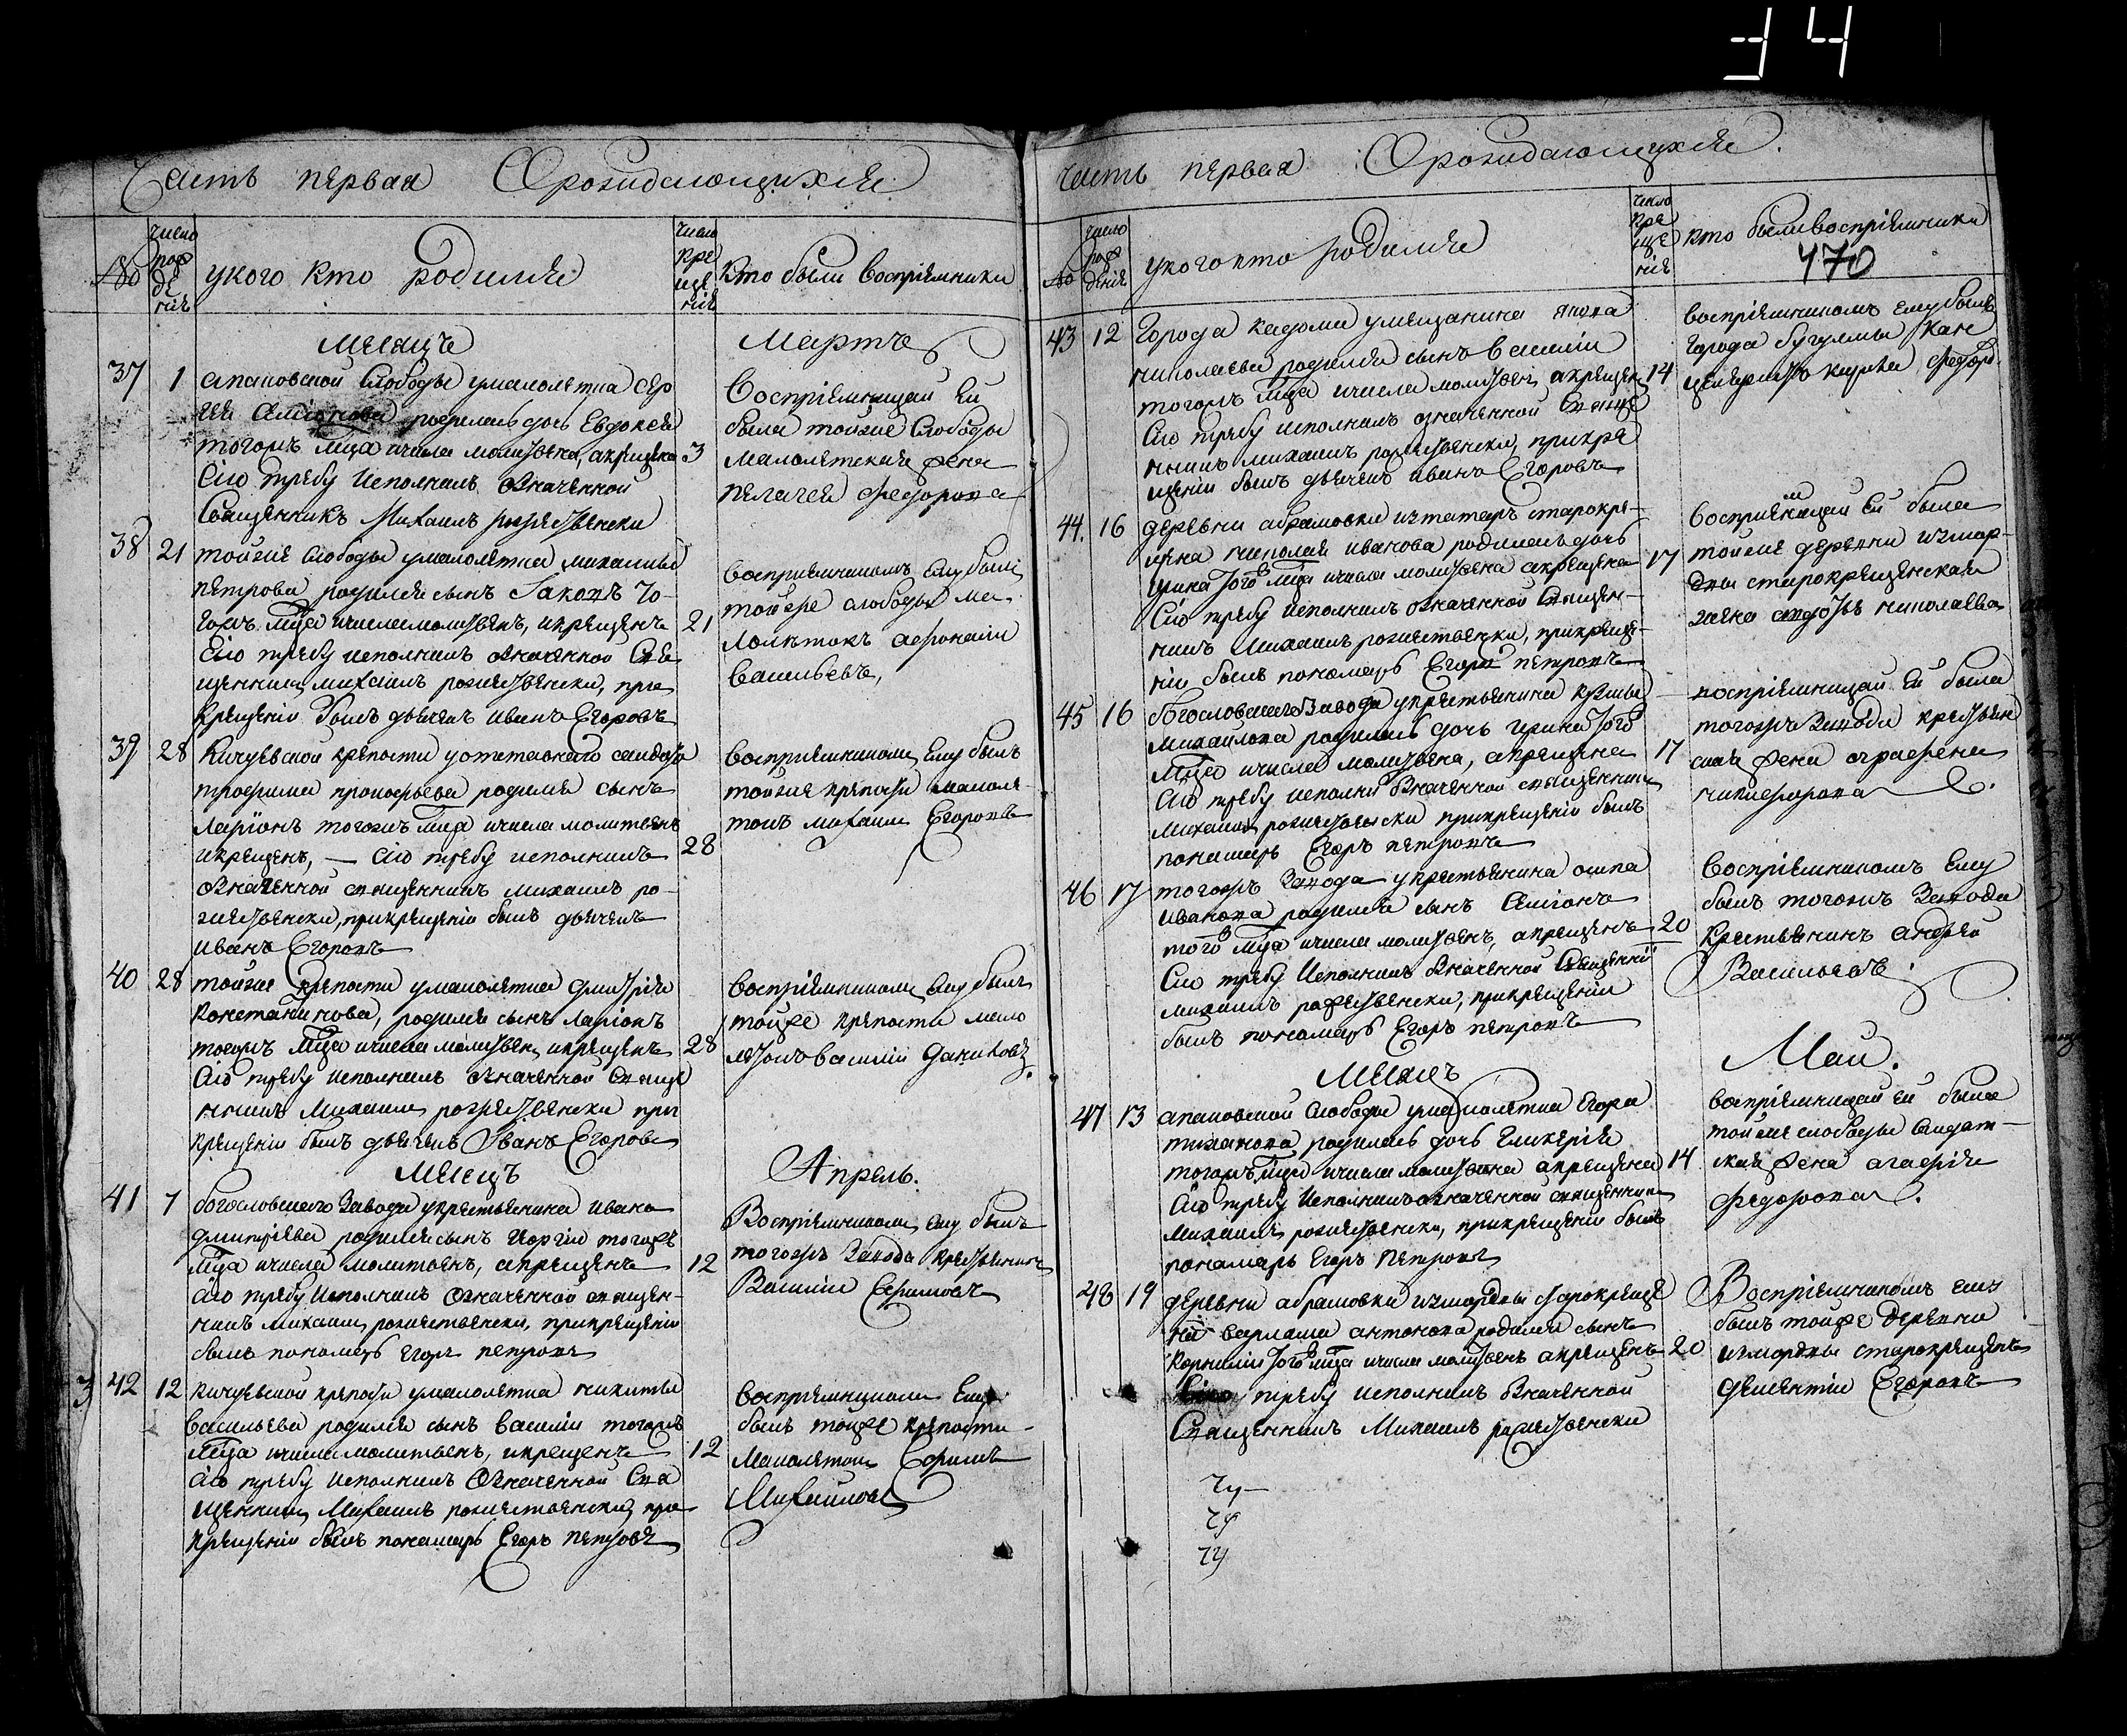 34
Часть первая О рождающихся
№
число рождения
у кого кто родился
число крещения
кто были восприемники
месяцъ
Мартъ
37 1
апаковской Слободы умалолетка Сер
гея Симионова родилась дочь Евдокея
тогожъ мца ичисла молитвена, акрещена 3
Сiю требу исполнилъ Означенной
Священникъ Михаилъ рождественски
Восприемницаю Ей
была тойже Слободы
малолетская жена
пелагея Федорова
38 21
тойже слободы умалолетка михаилы
петрова родился сынъ Iаковъ то-
гожъ мца ичисламолитвенъ, икрещенъ 21
Сiю требу исполнилъ означенной Свя
щенникъ михаилъ рождественски, при
крещенiи былъ дьячекъ иванъ Егоровъ
восприемникомъ ему былъ
тойже слободы ма
лолетокъ афонасiи
васильевъ,
39 28
Кичуевской крепости уотставнаго салдата
трофима прокофьева родился сынъ
ларiонъ тогожъ мца ичисла молитвенъ
икрещенъ, — сiю требу исполнилъ 28
означенной священникъ михаилъ ро-
ждественски, прикрещенiи былъ дьячекъ
иванъ Егоровъ
восприемникомъ Ему былъ
тойже крепости малоле
токъ михаила Егоровъ
40 28
тойже крепости умалолетка дмитрiя
константинова, родился сынъ ларiонъ
тогожъ мца ичисла молитвенъ, икрещенъ 28
Сiю требу исполнилъ означенной Свяще
нникъ Михаилъ рождественски при
крещенiи былъ дьячекъ Иванъ Егоровъ
восприемникомъ Ему былъ
тойже крепости мало
летокъ василiи даниловъ.
месецъ
Апрель.
41 7
богословскаго Завода укрестьянина ивана
дмитрiева родился сынъ Георгiи тогожъ
мца ичисла молитвенъ, акрещенъ 12
сiю требу исполнилъ Означенной священ-
никъ михаилъ, рождественски, прикрещенiи
былъ пономарь Егоръ петровъ
Восприемникомъ Ему былъ
тогожъ Завода крестьянинъ
Василiи Ефимовъ
42 12
кичуевской крепости умалолетка никиты
васильева родился сынъ василiи тогожъ
мца ичисла молитвенъ, икрещенъ 12
сiю требу исполнилъ Означенной Свя
щенникъ Михаилъ рождественски, при
крещенiи былъ пономарь Егоръ петровъ
восприемникомъ Ему
былъ тойже крепости
малолетокъ Ефимъ
Михаиловъ
часть первая О рождающихся.
№
число рождения
у кого кто родился
число крещения
кто были восприемники
470
43 12
Города кадома умещанина якова
николаева родился сынъ василiи
тогожъ мца ичисла молитвенъ, акрещенъ 14
Сiю требу исполнилъ означенной Свяще
нникъ михаилъ рождественски, прикре
щенiи былъ дьячекъ иванъ Егоровъ
восприемникомъ ему былъ
Города бугулмы кан
целяристъ Федор
44. 16
деревни абрамовки изтатаръ старокре-
щена николая иванова родилась дочь
ирина того мца ичисла молитвена акрещена 17
Сiю требу исполнилъ означенной Священ-
никъ Михаилъ рождественски, прикреще-
нiи былъ пономарь Егоръ петровъ
восприемницаю Ей была
тойже деревни измор-
двы старокрещенская
жена николаева
45 16
богословскаго Завода укрестьянина кузмы
михаилова родилась дочь ирина того
мца ичисла молитвена, акрещена 17
Сiю требу исполни Означенной священникъ
михаилъ рождественски прикрещенiи былъ
пономарь Егоръ петровъ
восприемницаю Ей была
тогожъ Завода крестьян
ская жена аграфена
никифорова
46 17
тогожъ Завода укрестьянина осипа
иванова родился сынъ Симiонъ
того мца ичисла молитвенъ, акрещенъ 20
Сiю требу исполнилъ Означенной Священни
михаилъ рождественски, прикрещенiи
былъ пономарь Егоръ петровъ
Восприемникомъ Ему
былъ тогожъ Завода
крестьянинъ андрей
Васильевъ
Месецъ
Маи.
47 13
апаковской слободы умалолетка Егора
тиханова родилась дочь Гликерiя
тогожъ мца ичисла молитвена акрещена 14
Сiю требу исполнилъ означенной священникъ
Михаилъ рождественски, прикрещенiи былъ
пономарь Егоръ Петровъ
восприемницаю ей была
тойже слободы салдат-
ская жена агафiя
Федорова
48 19
деревни абрамовки измордвы старокреще
на варлама антонова родился сынъ
корнилiи того мца ичисла молитвенъ акрещенъ 20
Сiю требу исполнилъ Означенной
Священникъ Михаилъ рождественски
Восприемникомъ ему
былъ тойже деревни
измордвы старокрещенъ
дементiи Егоровъ